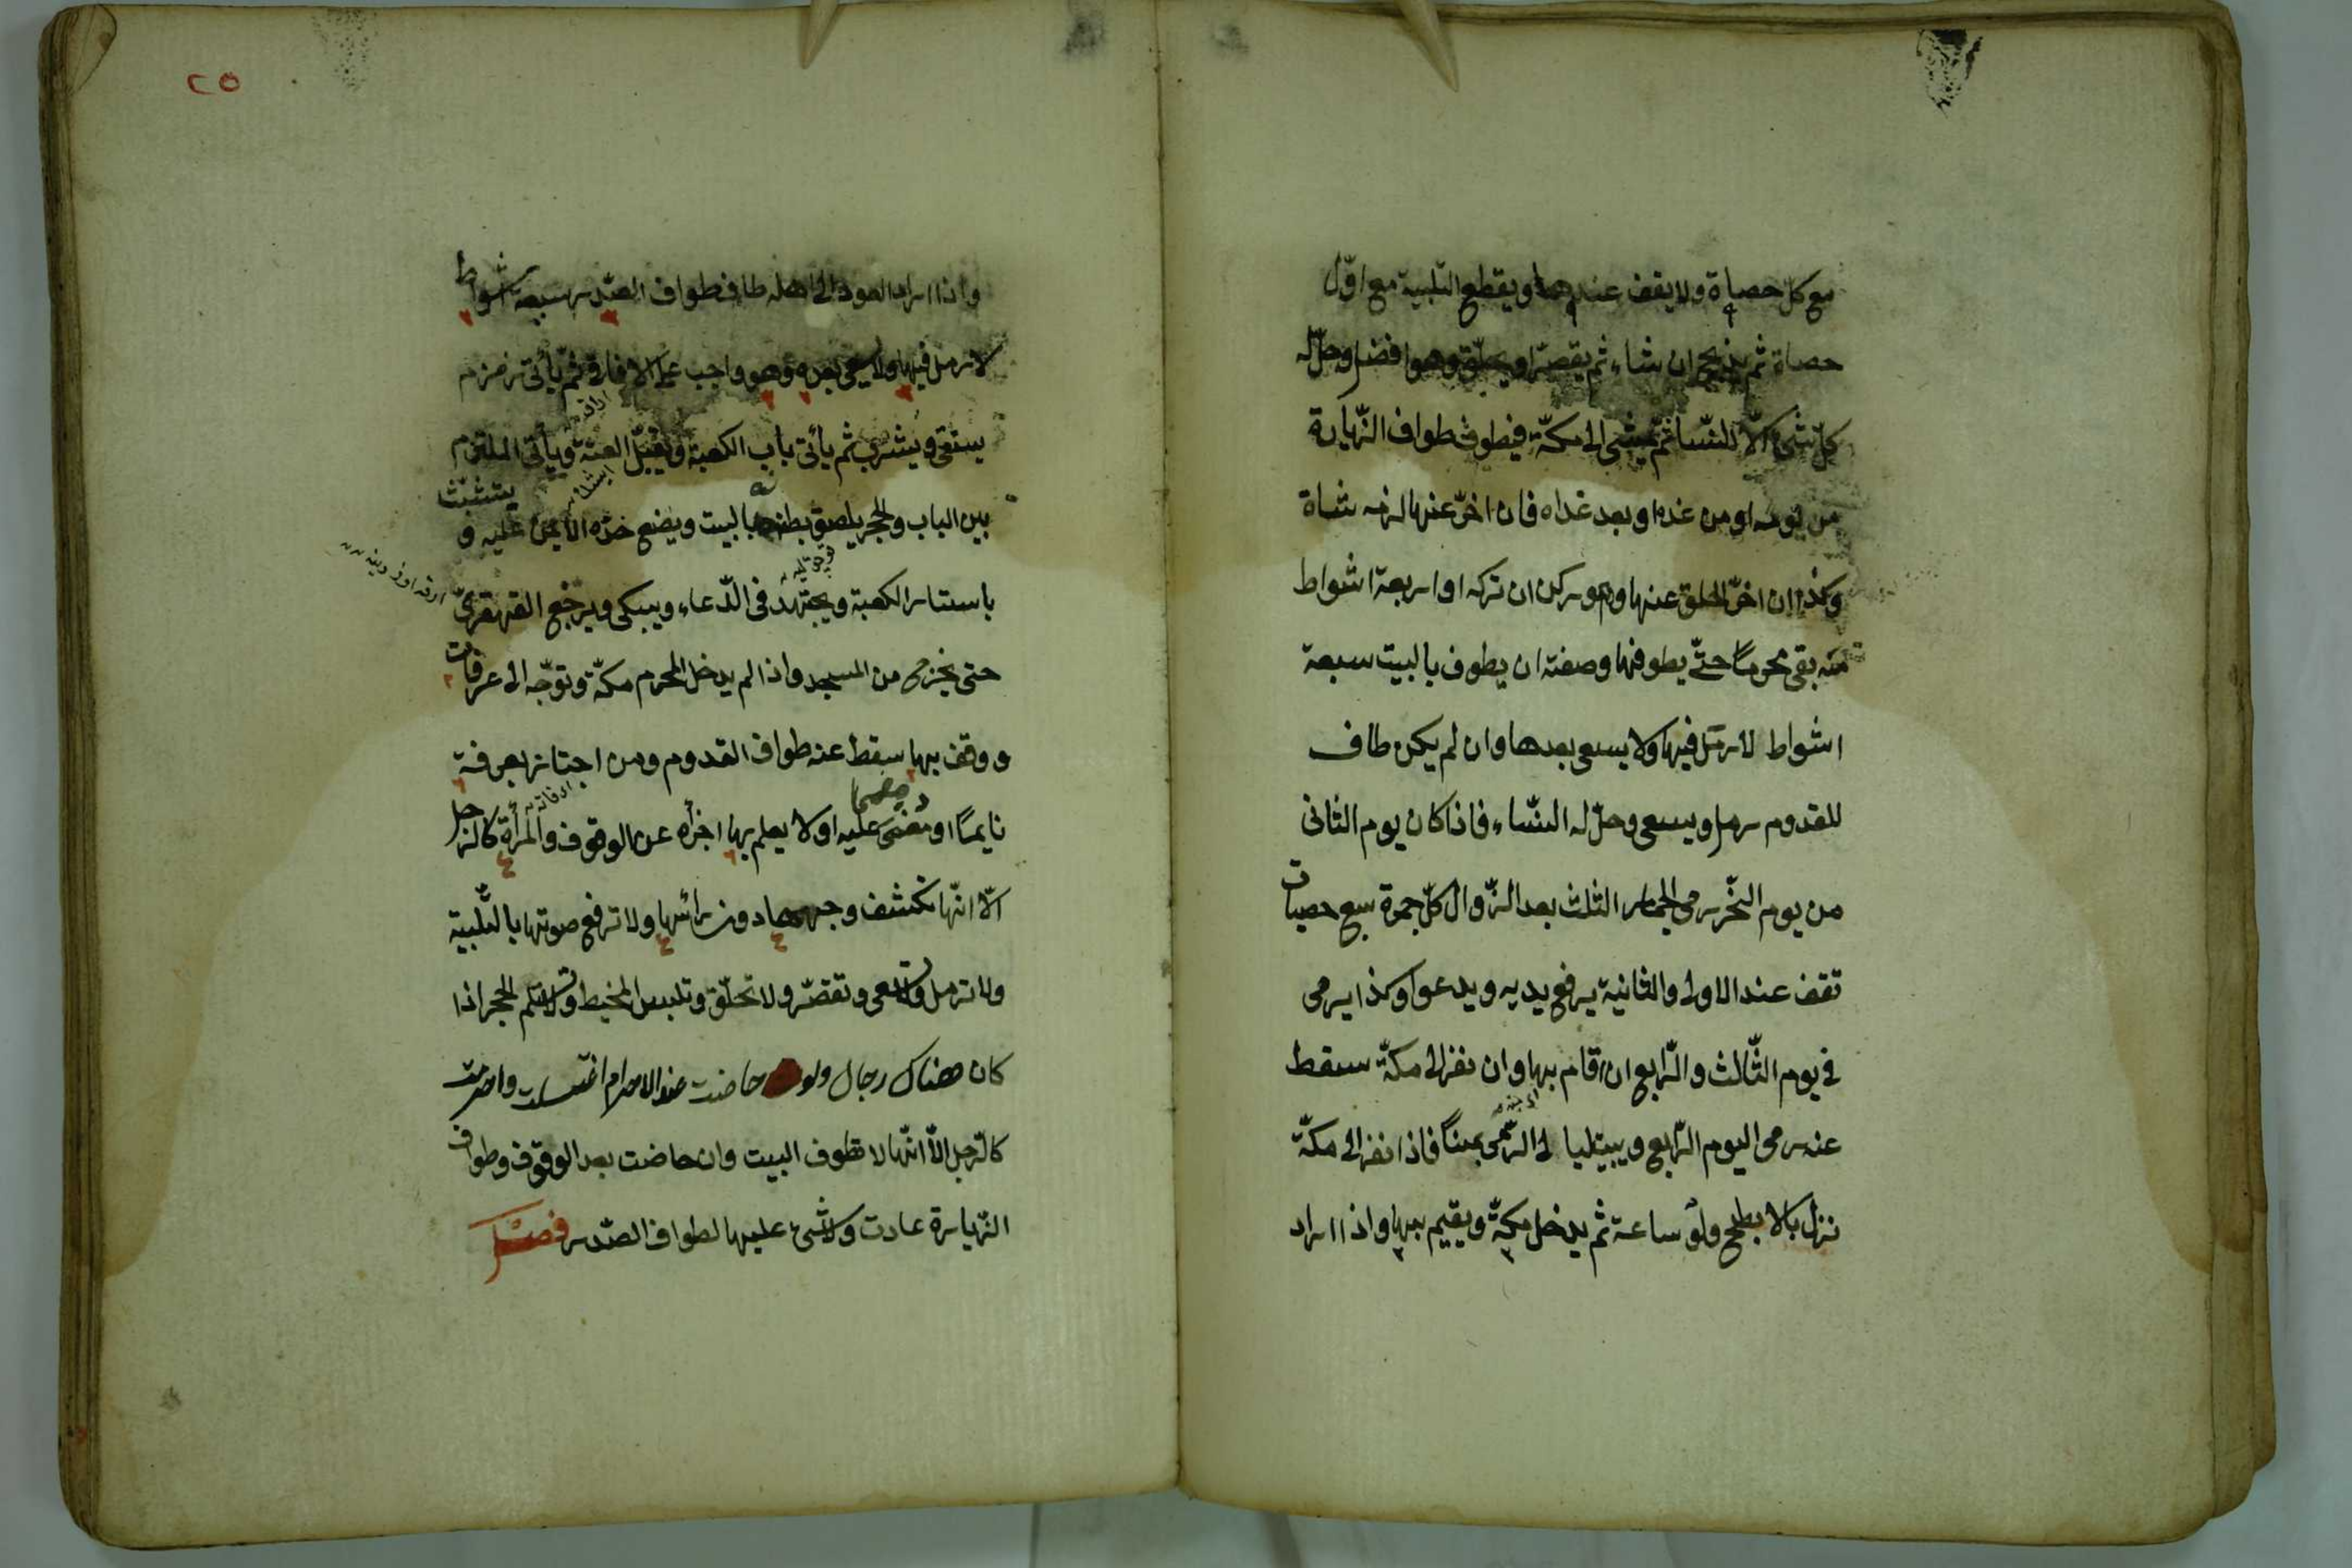 مع كلّ حصاة ولا يقف عندها ويقطع التلبية مع اوّل
حصاة ثم يذبح ان شاء ثم يقصّر او يحلق وهو افضل وحلّ له
كلّ شئ الّا النّسا ثم يمشى الى مكّة فيطوف طواف الزّيارة
من يومه او من غده او بعد غداه فان اخّر عنها لزمه شاة
وكذا ان اخّر الحلق عنها وهو ركن ان تركه او اربعة اشواط
منه بقى محرمًا حتّى يطوفها وصفته ان يطوف بالبيت سبعة
اشواط لا رمل فيها ولا يسعى بعدها وان لم يكن طاف
للقدوم رمل ويسعى وحلّ له النّساء فاذا كان يوم الثانى
من يوم النّحر رمى الجمار الثلث بعد الزّوال كلّ جمرة سبع حصيات
تقف عند الاولى والثانية يرفع يديه ويدعوا وكذا يرمى
فى يوم الثّالث والرّابع ان اقام بها وان نفر الى مكّة سقط
عنه رمى اليوم الرّابع ويبيت ليالى الرّمى بمنًا فاذا نفر الى مكّة
نزل بالابطح ولو ساعة ثم يدخل مكّة ويقيم بها واذا اراد
٢٥
واذا اراد العود الى اهله طاف طواف الصّدر سبعة اشواط
لا رمل فيها ولا سعى بعده وهو واجب على الافاقى ثم يأتى زمزم
يستقى ويشرب ثم يأتى باب الكعبة ويقبّل العتبة ويأتى الملتزم
بين الباب والحجر يلصق بطنه بالبيت ويضع خدّه الايمن عليه و يتشبّث
باستار الكعبة ويجتهد فى الدّعاء ويبكى ويرجع القهقرىّ
حتى يخرج من المسجد واذا لم يدخل المحرم مكّة وتوجّه الى عرفات
ووقف بها سقط عنه طواف القدوم ومن اجتاز بعرفة
نايمًا او مغمى عليه او لا يعلم بها اجزأه عن الوقوف والمرأة كالرّجل
الّا انّها تكشف وجهها دون رائسها ولا ترفع صوتها بالتّلبية
ولا ترمل ولا تسعى وتقصّر ولا تحلّق وتلبس المخيط ولا تستلم الحجر اذا
كان هناك رجال ولو حاضت عند الاحرام اغتسلت واحرمت
كالرّجل الّا انّها لا تطوف البيت وان حاضت بعد الوقوف وطواف
الزّيارة عادت ولا شئ عليها لطواف الصّدر فصل